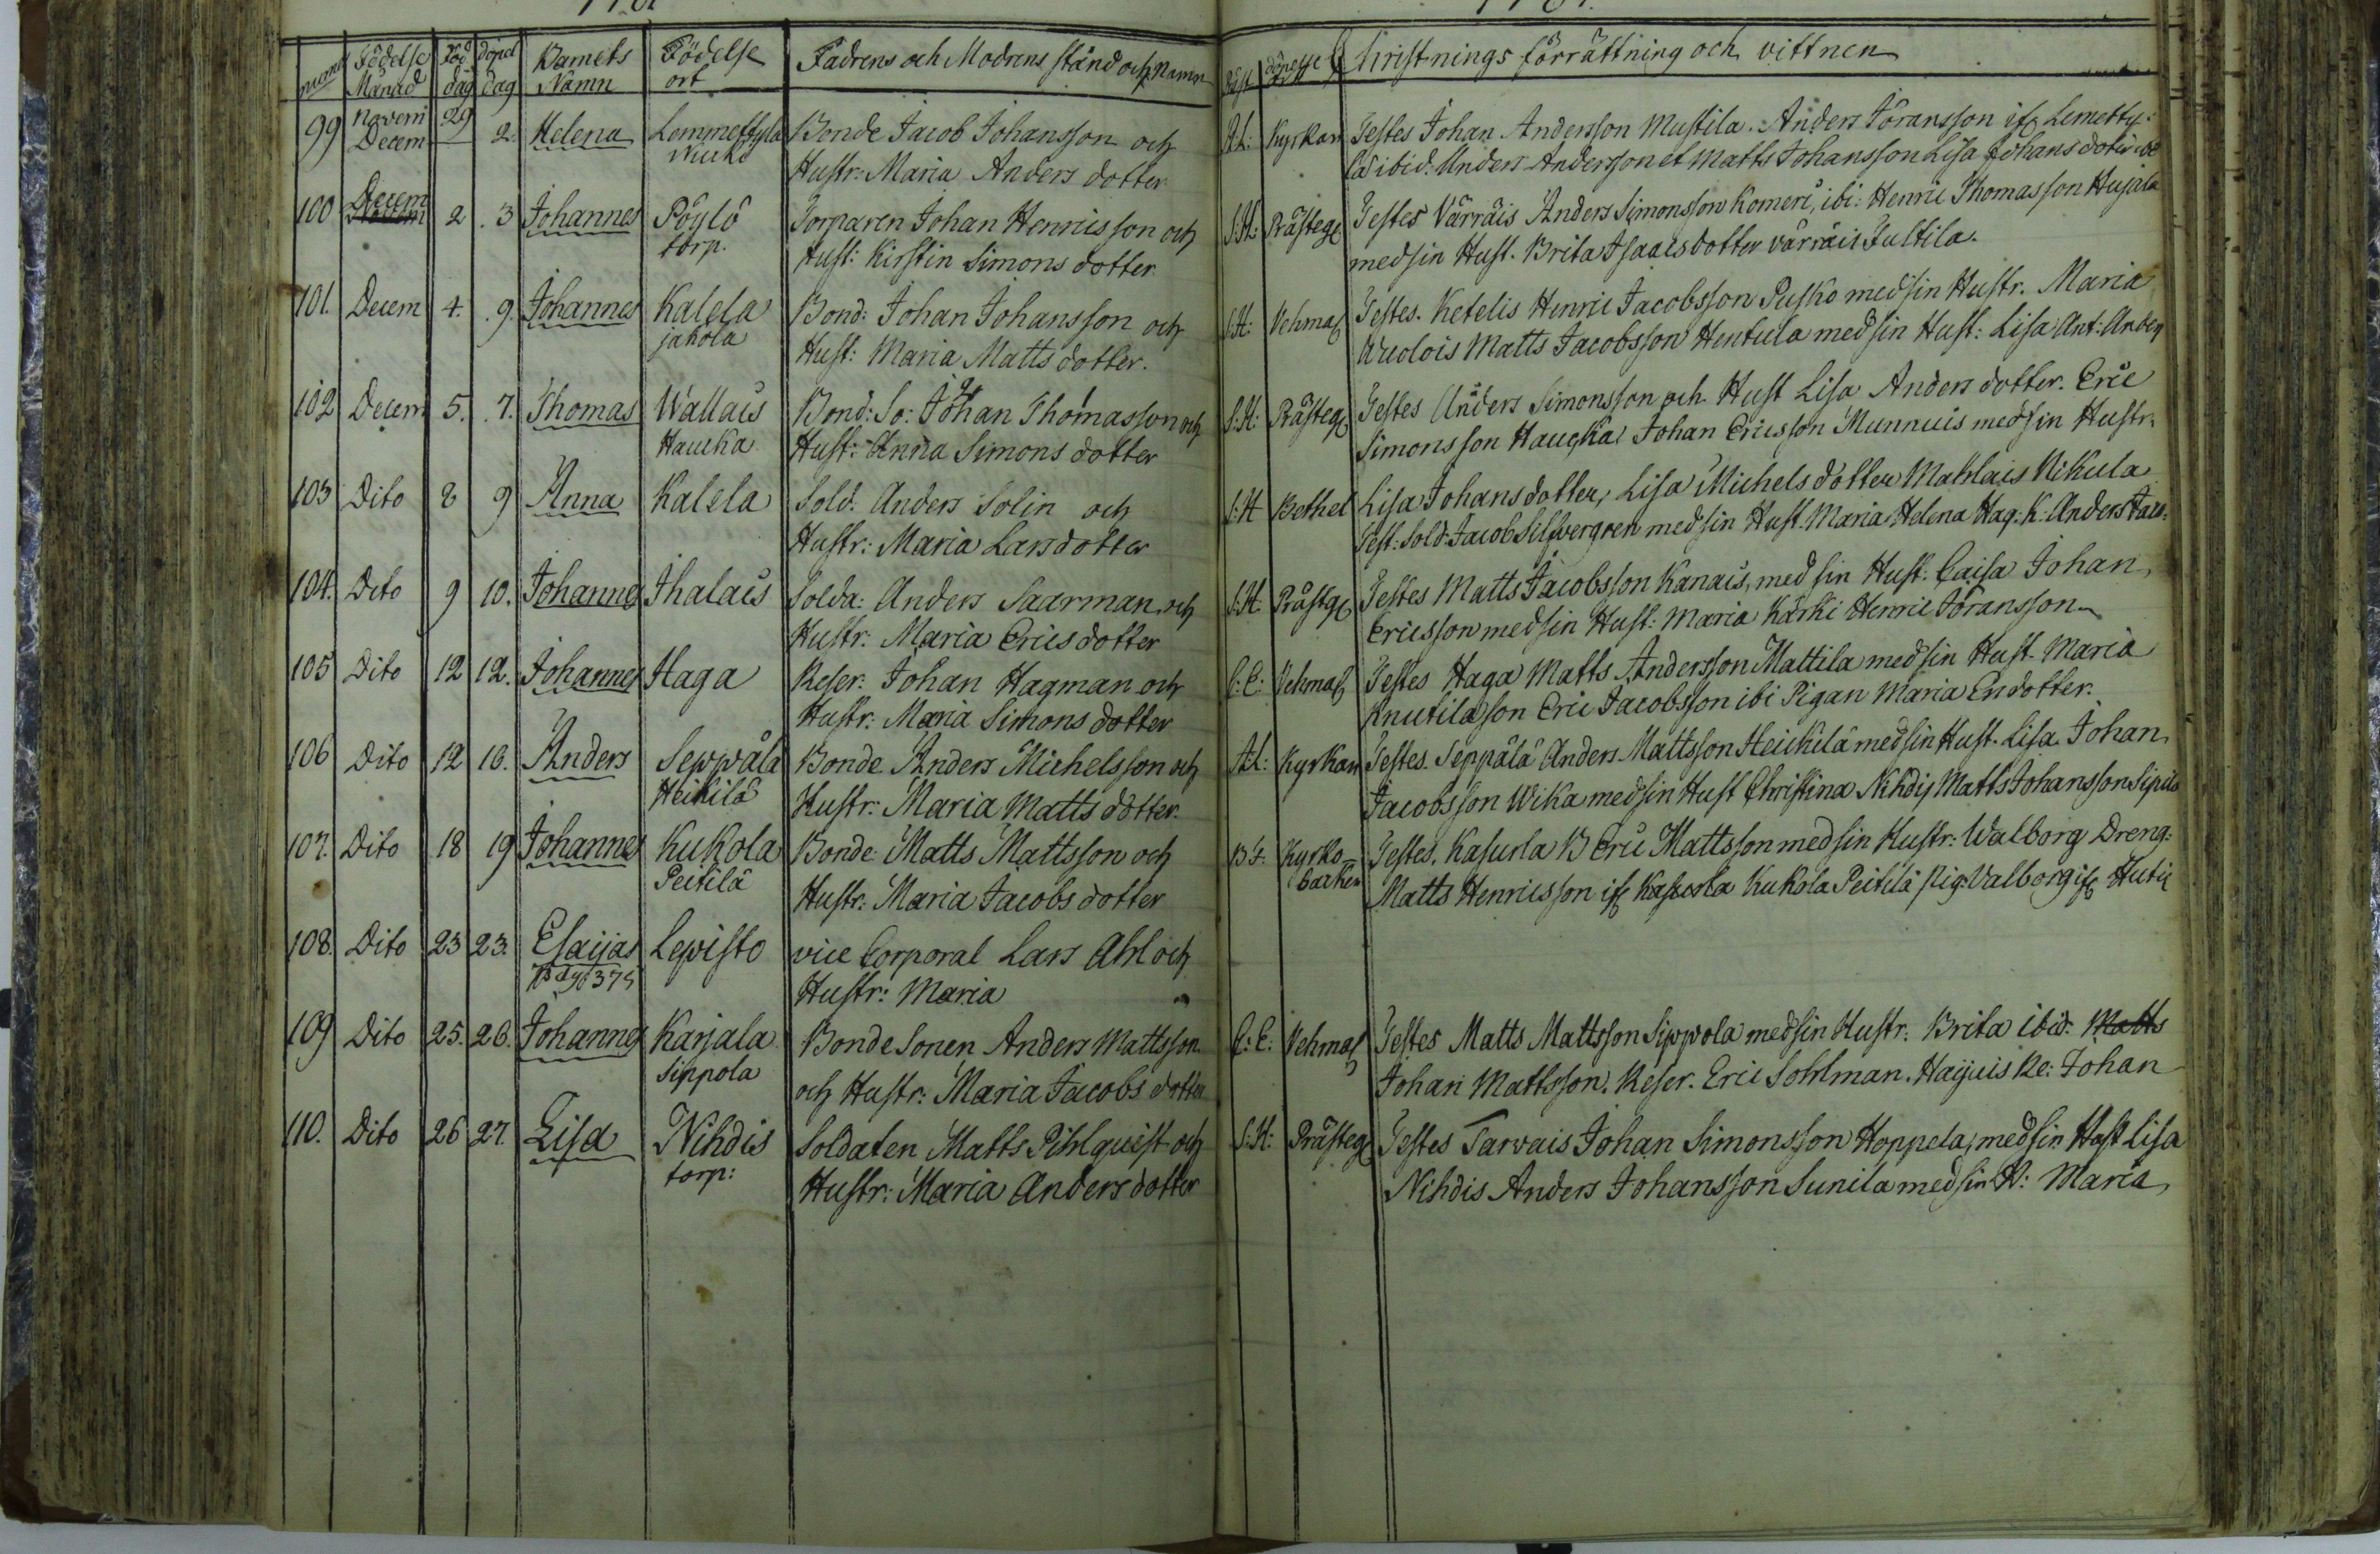 Födelse Månad | Föd dag | döpel dag | Barnets Namn | Födelse ort | Fadrens och Modrens stånd och Namn | Christnings förrättning och vittnen
99 | Novem 29 Decem | 2. | Helena | Lemmettyla | Bonde Jacob Johansson och | Kyrkan | Testes Johan Andersson Mustila. Anders Jöransson if Lemetty:
Hustr: Maria Anders dotter | lä ibid: Anders Andersson et Matts Johansson Lisa Johans dotir
100 | Decem | 2 | 3 | Johannes | Pöylö | Torparen Johan Henricsson och | S:H: | Prästeg | Testes Värräis Anders Simonsson Komeri, ibi: Henric Thomasson Hujala
torp. | Hust: Kirstin Simons dotter | med sin Hust. Brita Isaacs dotter värräis Jultila.
101. | Decem | 4. | 9. | Johannes | Kalela | Bond: Johan Johansson och | S:H: | Vehmas | Testes. Ketelis Henric Jacobsson Pusko med sin Hustr. Maria
jakola | Hust: Maria Matts dotter. | Wuolois Matts Jacobsson Hentula med sin Hust: Lisa Ant: Anders
102 | Decem | 5. | 7. | Thomas | Wallais | Bond: So: Johan Thomasson och | S:H: | Prästeg | Testes Anders Simonsson och Hust Lisa Anders dotter. Eric
Haucka | Hust: Anna Simons dotter | Simonsson Haucka Johan Ericsson Munnuis med sin Hustr.
103 | Dito | 8 | 9 | Anna | Kalela | Sold: Anders Solin och | S:H | Bethel | Lisa Johans dotter, Lisa Michels dotter Mahlais Nikula
Hustr: Maria Lars dotter | Test: Sold: Jacob Silfvergren med sin Hust. Maria Helena Hag: K: Anders Jaco:
104. | Dito | 9 | 10. | Johannes | Ihalais | Solda: Anders Saarman och | S:H. | Prästg | Testes Matts Jacobsson Kanais, med sin Hust: Caisa Johan
Hustr: Maria Erics dotter | Ericsson med sin Hust: Maria Kärki Henric Jöransson
105 | Dito | 12 | 12. | Johannes | Haga | Reser: Johan Hagman och | C:C: | Vehmas | Testes Haga Matts Andersson Mattila med sin Hust. Maria
Hustr: Maria Simons dotter | Knutila son Eric Jacobsson ibi Pigan Maria Ersdotter.
106 | Dito | 12 | 16. | Anders | Seppälä | Bonde Anders Michelsson och | Kyrkan | Testes. Seppälä Anders Mattsson Heickilä med sin Hust. Lisa. Johan
Heikilä | Hustr: Maria Matts dotter. | Jacobsson Wika med sin Hust Christina Nihdis Matts Johansson Sipilö
107. | Dito | 18 | 19 | Johannes | Kukola | Bonde Matts Mattsson och | Kyrko= | Testes. Kasurla B Eric Mattsson med sin Hustr: Walborg Dreng:
Peitilä | Hustr: Maria Jacobs dotter | backen | Matts Henricsson if Kasurla Kukola Peitilä Pig: Valborg if Hutis
108. | Dito | 23 | 23. | Esaijas | Lepisto | vice Corporal Lars Ahl och
Hustr: Maria
109 | Dito | 25. | 26. | Johannes | Karjala | Bonde Sonen Anders Mattsson | C:C: | Vehmas | Testes Matts Mattsson Sippola med sin Hustr. Brita ibid. Matts
Sippola | och Hustr: Maria Jacobs dotter | Johan Mattsson. Reser. Eric Sohlman. Haijuis Re: Johan
110. | Dito | 26 | 27. | Lisa | Nihdis | Soldaten Matts Pihlquist och | S:H: | Prästeg | Testes Tarvais Johan Simonsson Hoppela, med sin Hust Lisa
torp: | Hustr: Maria Anders dotter | Nihdis Anders Johansson Sunila med sin H: Maria